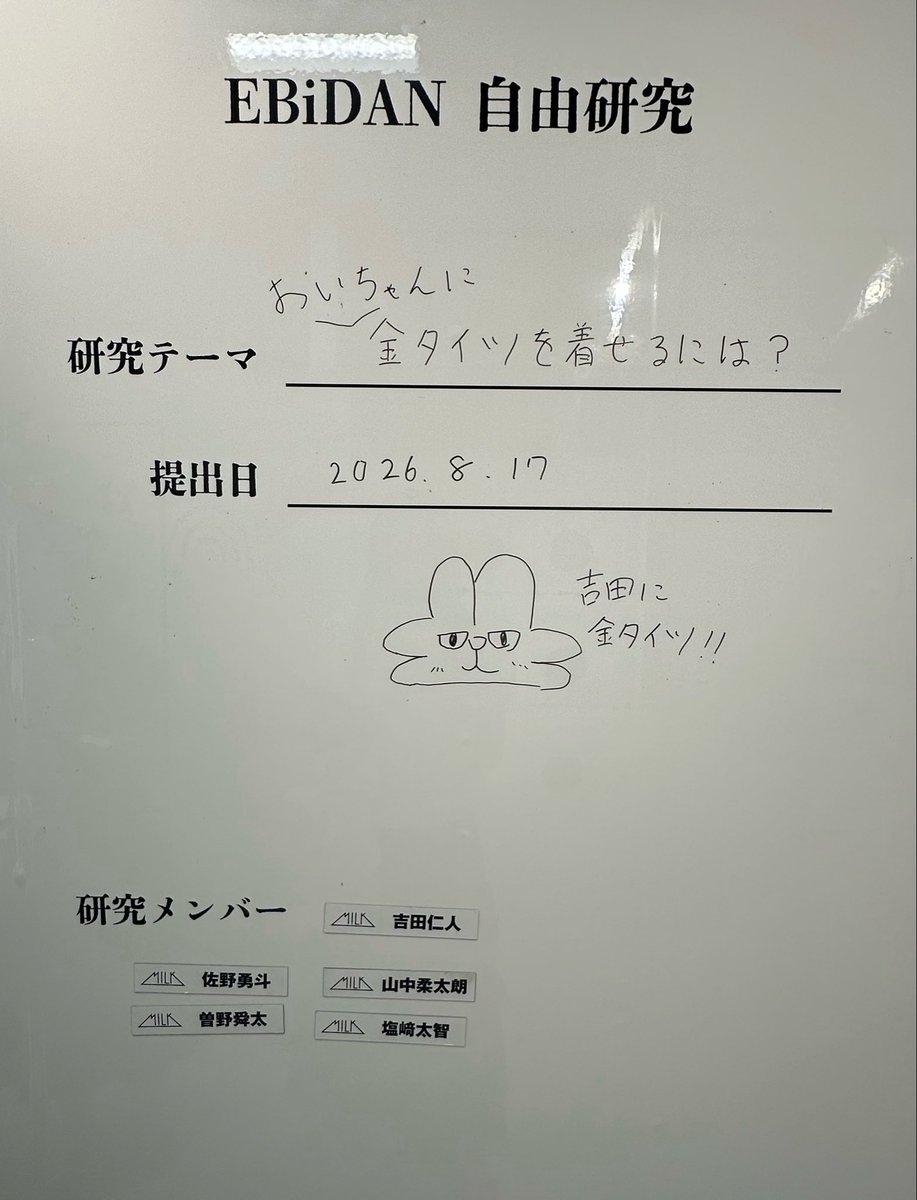 EBiDAN 自由研究
おいちゃんに
研究テーマ 金タイツを着せるには？
提出日 2026.8.17
吉田に
金タイツ!!
研究メンバー M!LK 吉田仁人
M!LK 佐野勇斗 M!LK 山中柔太朗
M!LK 曽野舜太 M!LK 塩﨑太智